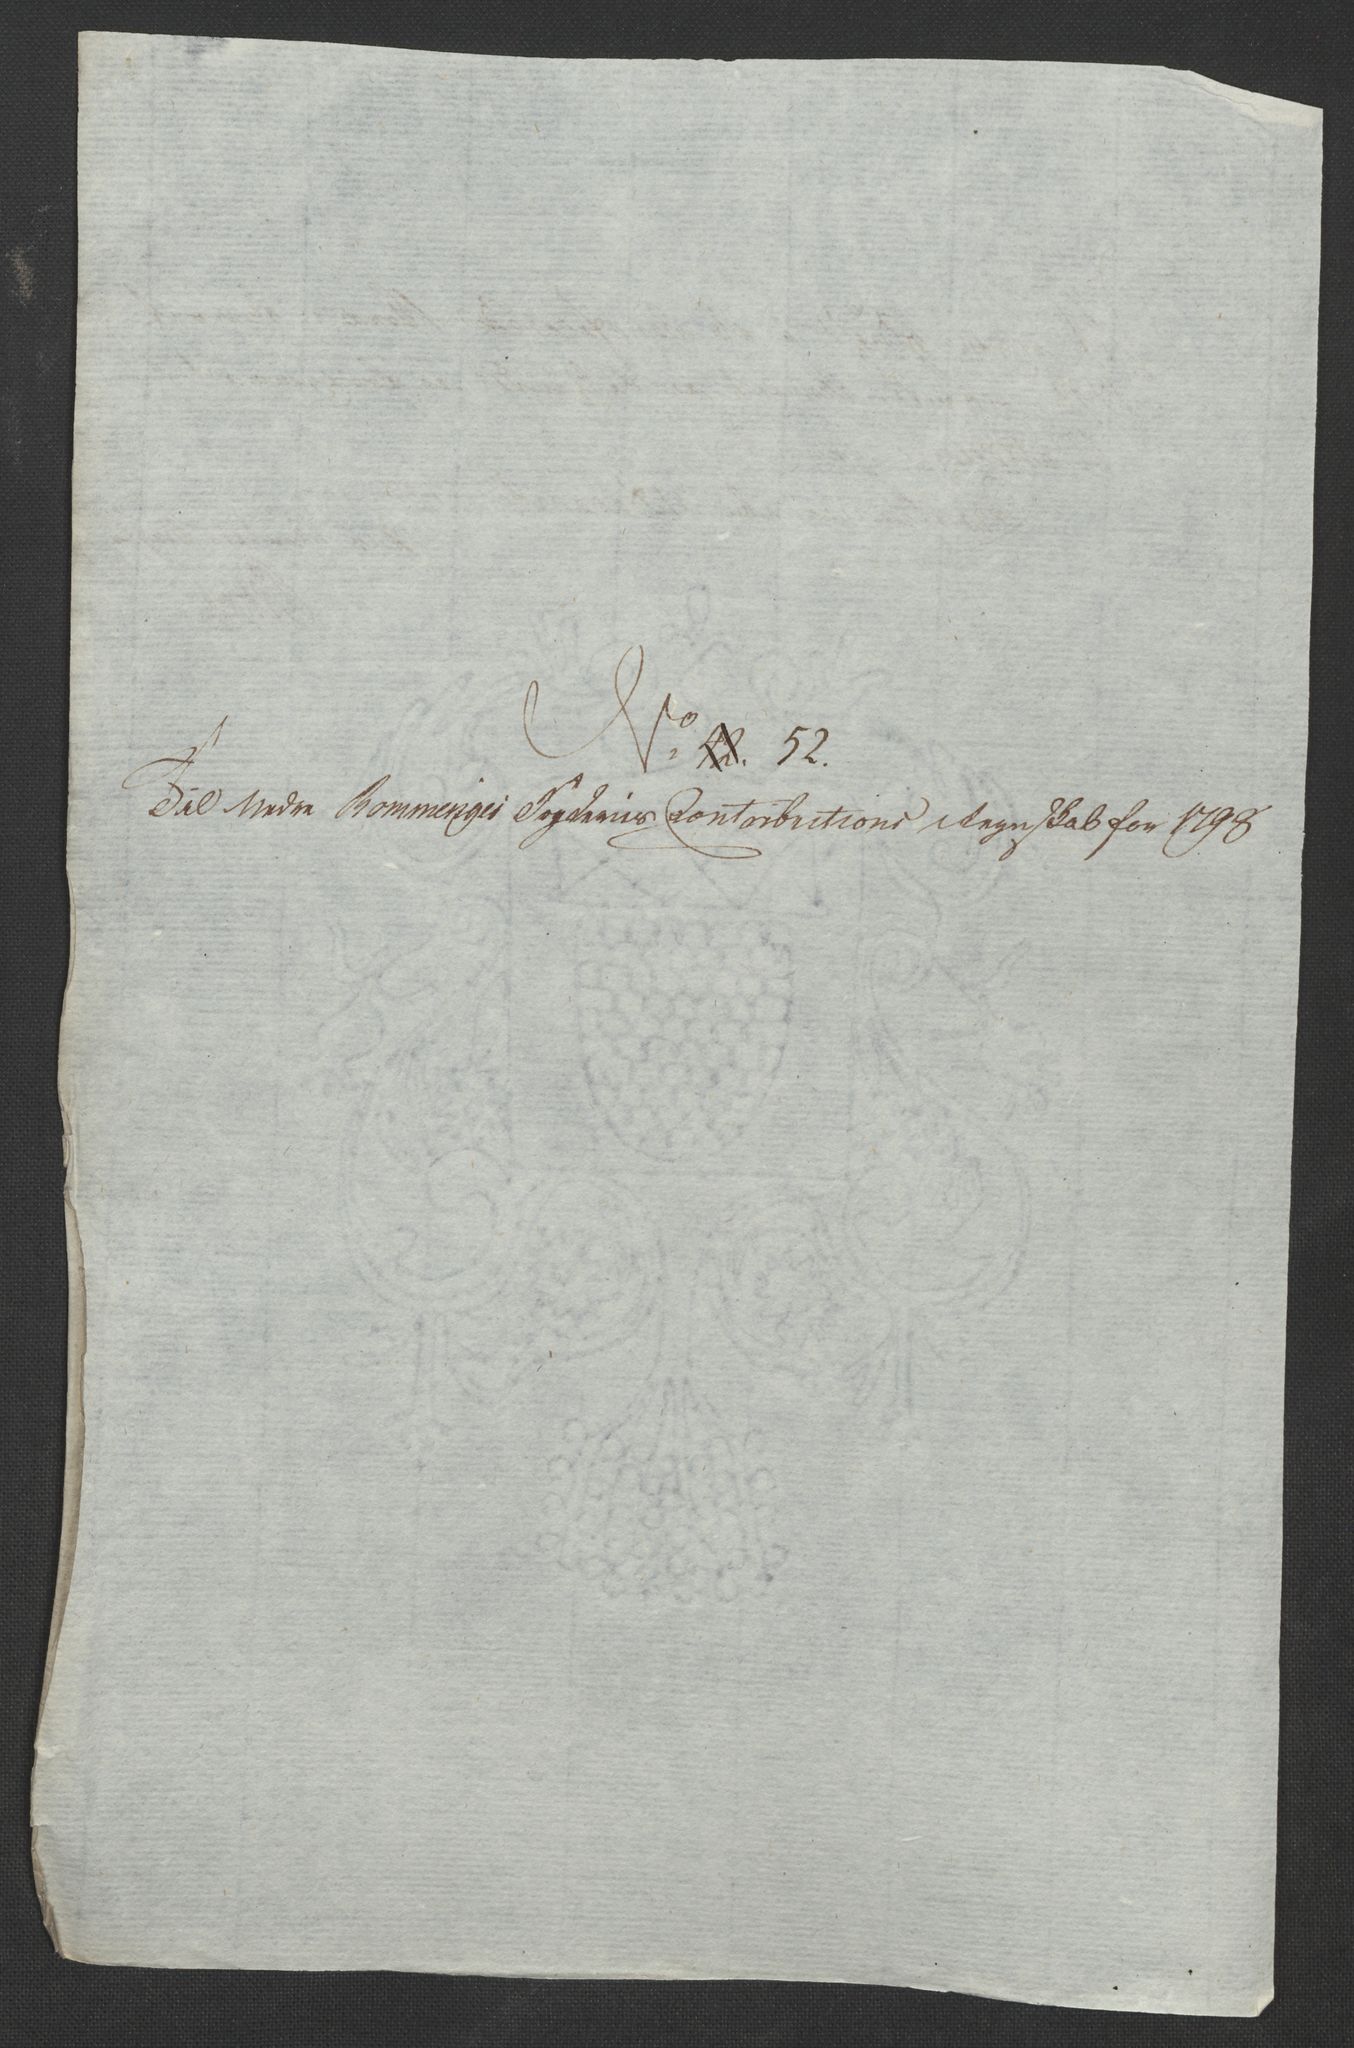 No. 42. 52.
Til Nedre Rommeriges Fogderies Contributions Regnskab for 1798